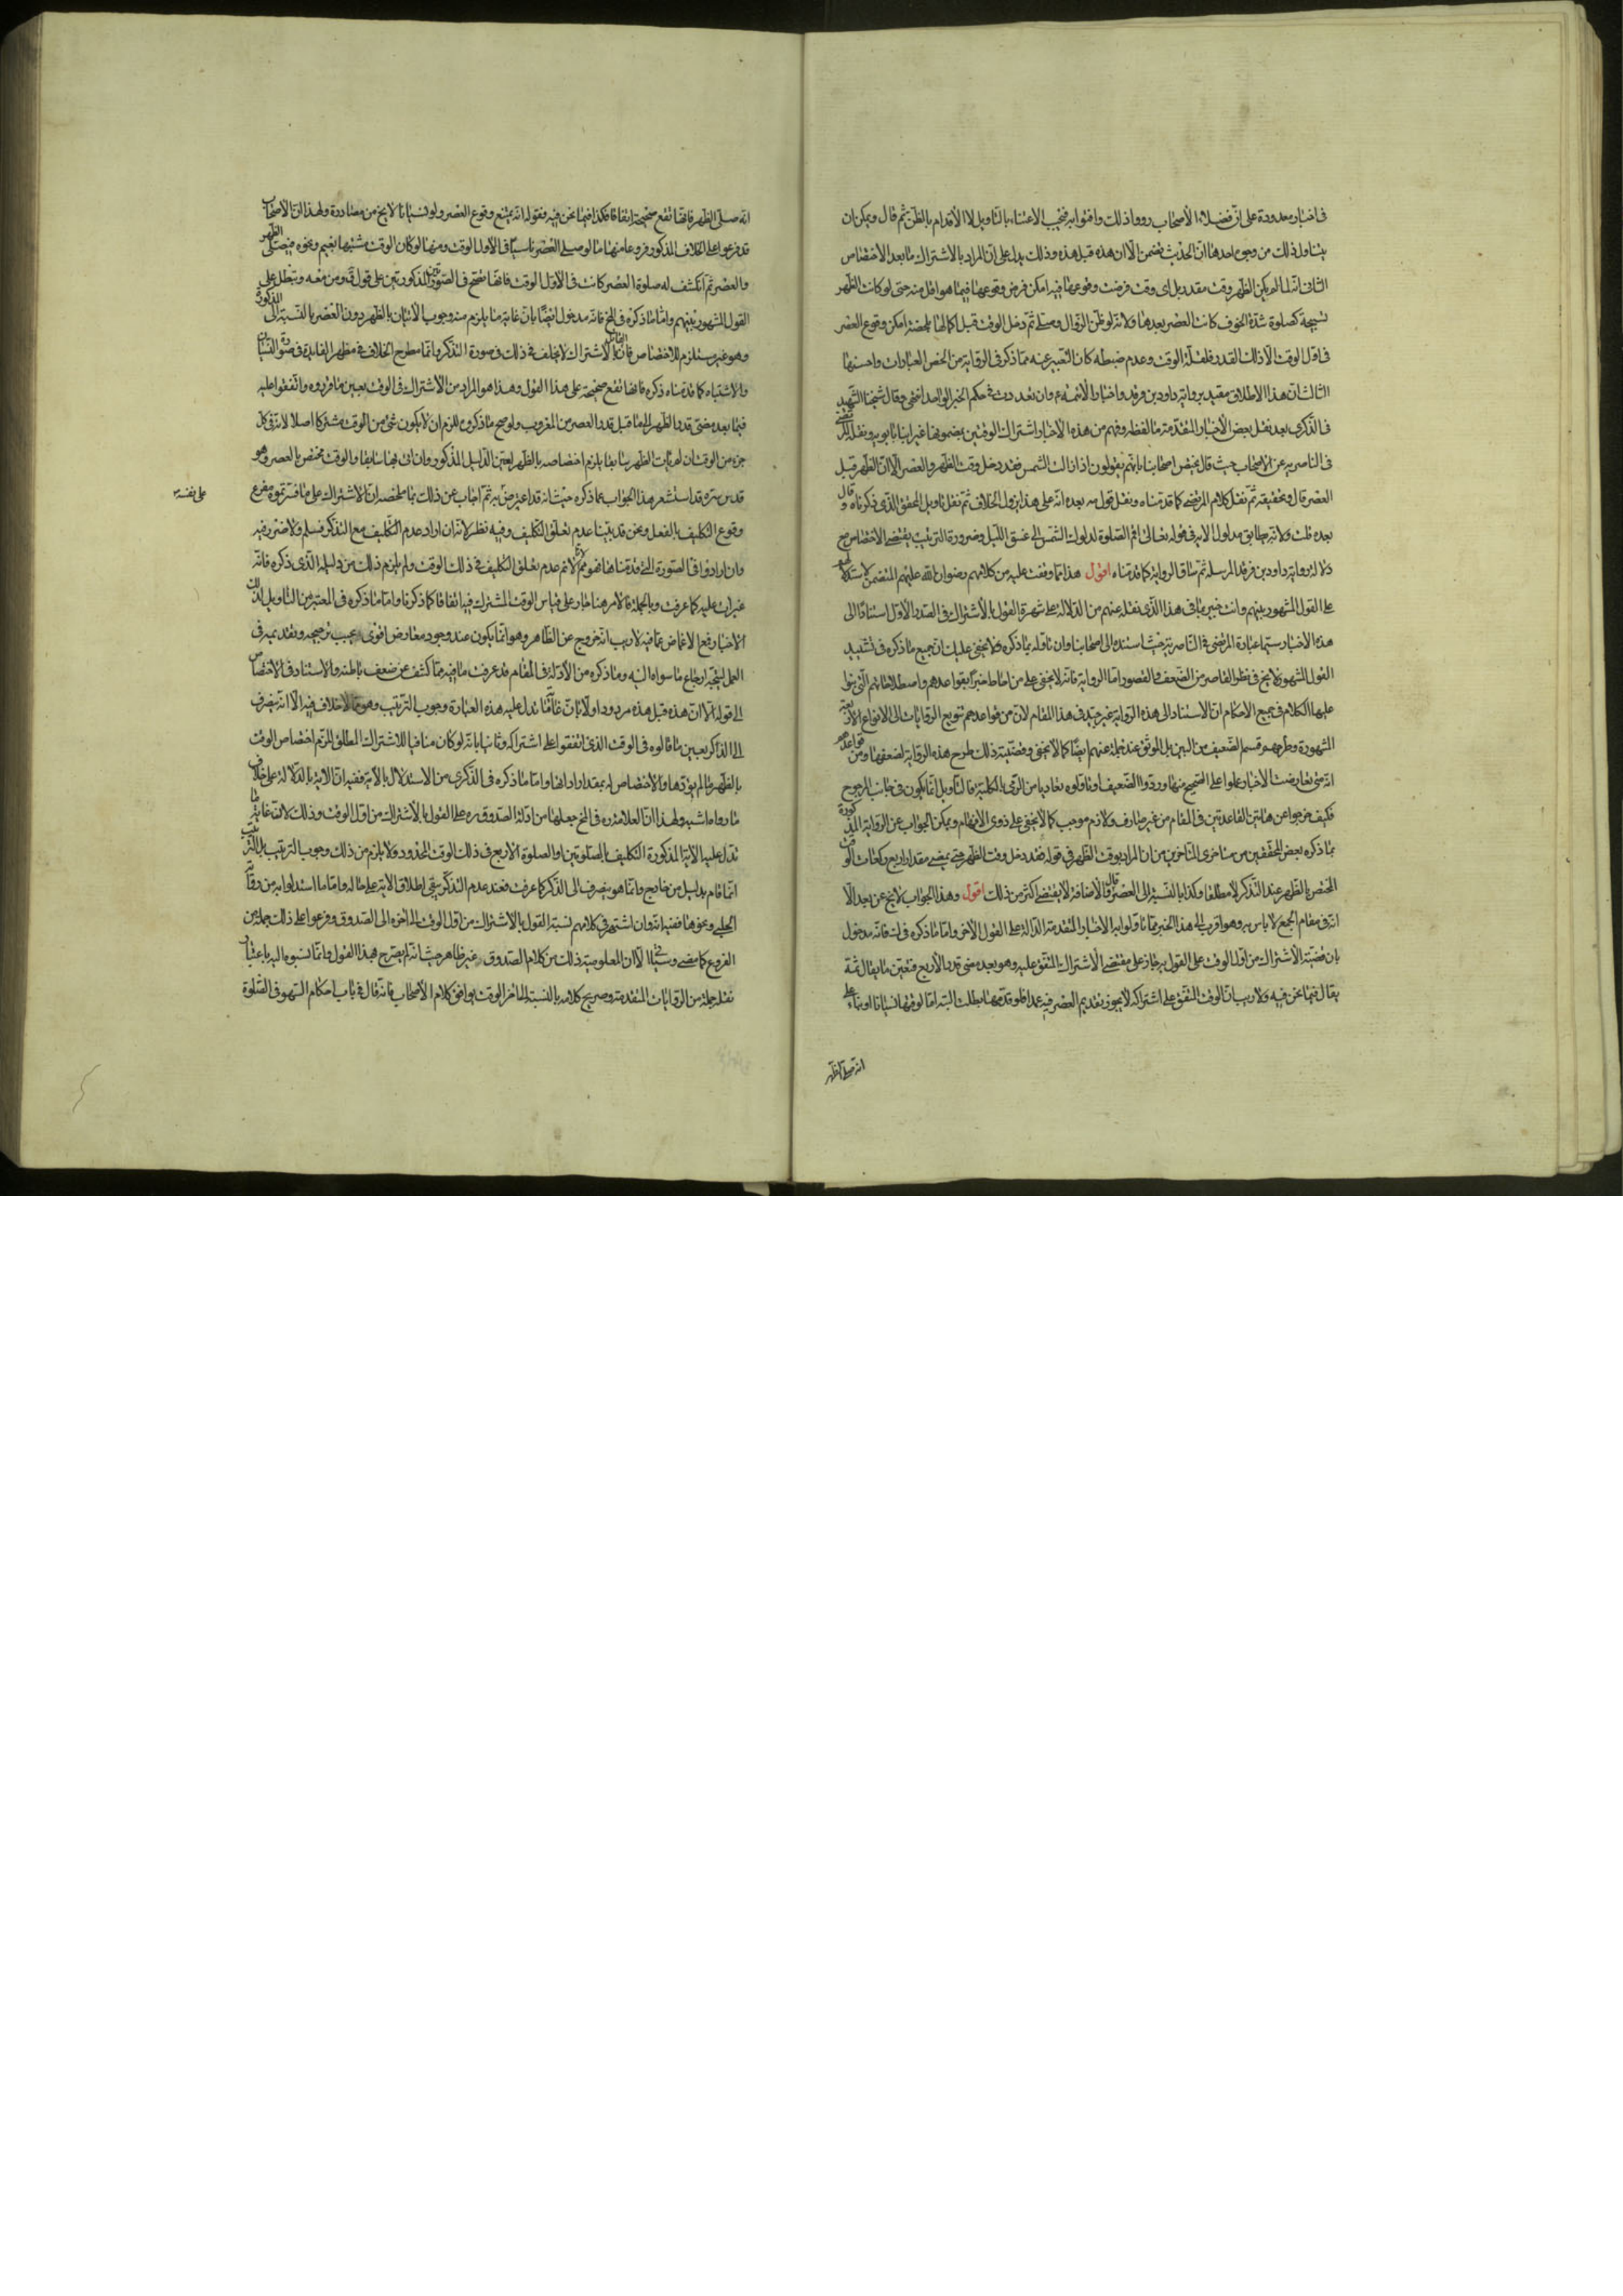 في اخبار معدودة على ان فضلاء الاصحاب رووا ذلك وافتوا به فيجب الاعتناء بالتاويل لا الاقدام بالطعن ثم قال ويمكن ان
يتاول ذلك من وجوه احدها ان الحديث تضمن الا ان هذه قبل هذه وذلك يدل على ان المراد بالاشتراك ما بعد الاختصاص
الثاني انه لما لم يكن للظهر وقت مقدر بل اي وقت فرضت وقوعها فيه امكن فرض وقوعها فيما هو اقل منه حتى لو كانت الظهر
تسبيحة كصلوة شدة الخوف كانت العصر بعدها ولانه لو ظن الزوال وصلى ثم دخل الوقت قبل اكمالها بلحظة امكن وقوع العصر
في اول الوقت الا ذلك القدر فلقلة الوقت وعدم ضبطه كان التعبير عنه بما ذكر في الرواية من الخص العبارات واحسنها
الثالث ان هذا الاطلاق مقيد برواية داود بن فرقد واخبار الائمة ع وان تعددت في حكم الخبر الواحد انتهى وقال شيخنا الشهيد
في الذكرى بعد نقل بعض الاخبار المتقدمة ما لفظه وفهم من هذه الاخبار اشتراك الوقتين بمضمونها غير ابنا بابويه ونقله المرتضى
في الناصرية عن الاصحاب حيث قال يختص اصحابنا بانهم يقولون اذا زالت الشمس فقد دخل وقت الظهر والعصر الا ان الظهر قبل
العصر قال وتحقيقه ثم نقل كلام المرتضى كما قدمناه ونقل قوله بعده انه على هذا يزول الخلاف ثم نقل تاويل المحقق الذي ذكرناه وقال
بعده قلت ولانه يطابق مدلول الاية في قوله تعالى اقم الصلوة لدلوك الشمس الى غسق الليل وضرورة الترتيب يقتضي الاختصاص مع
دلالة رواية داود بن فرقد المرسلة ثم ساق الرواية كما قدمناه اقول هذا ما وقفت عليه من كلامهم رضوان الله عليهم المتضمن لاستدلالهم
على القول المشهور بينهم وانت خبير بما في هذا الذي نقله عنهم من الدلالة على شهرة القول بالاشتراك في الصدر الاول استنادا الى
هذه الاخبار سيما عبارة المرتضى في الناصرية حيث اسنده الى اصحابنا وان تاوله بما ذكره ولا يخفى عليك ان جميع ما ذكره في تشييد
القول المشهور لا يخ في نظر القاصر من الضعف والقصور اما الرواية فانه لا يخفى على من احاط خبرا بقواعدهم واصطلاحاتهم التي بنوا
عليها الكلام في جميع الاحكام ان الاستناد الى هذه الرواية غير جيد في هذا المقام لان من قواعدهم تنويع الروايات الى الانواع الاربعة
المشهورة وطرحهم قسم الضعيف من البين بل الموثق عند جملة منهم ايضا كما لا يخفى وقضية ذلك طرح هذه الرواية لضعفها ومن قواعدهم
انه متى تعارضت الاخبار عملوا على الصحيح منها وردوا الضعيف او تاولوه تفاديا من الرمي بالكلية فالتاويل انما يكون في جانب المرجوح
فكيف خرجوا عن هاتين القاعدتين في المقام من غير صارف ولازم موجب كما لا يخفى على ذوي الافهام ويمكن الجواب عن الرواية المذكورة
بما ذكره بعض المحققين من متاخري المتاخرين من ان المراد بوقت الظهر في قوله فقد دخل وقت الظهر حتى يمضي مقدار اربع ركعات الوقت
المختص بالظهر عند التذكر لا مطلقا وكذا بالنسبة الى العصر قال والاضافة لا يقتضي اكثر من ذلك اقول وهذا الجواب لا يخ عن بعد الا
انه في مقام الجمع لا باس به وهو اقرب الى هذا الخبر مما تاولوا به الاخبار المتقدمة الدالة على القول الاخر واما ما ذكره في لف فانه مدخول
بان قضية الاشتراك من اول الوقت على القول به جار على مقتضى الاشتراك المتفق عليه وهو بعد مضي قدر الاربع فتعين ما يقال ثمة
يقال فيما نحن فيه ولا ريب ان الوقت المتفق على اشتراكه لا يجوز تقديم العصر فيه عمدا فلو قدمها بطلت البتة اما لو قدمها نسيانا او بناء على
انه صلى الظهر
انه صلى الظهر فانها تقع صحيحة اتفاقا فكذا فيما نحن فيه فقوله انه يمتنع وقوع العصر ولو نسيانا لا يخ من مصادرة ولهذا ان الاصحاب
قد فرعوا على الخلاف المذكور فروعا منها ما لو صلى العصر ناسيا في الاول الوقت ومنها لو كان الوقت مشتبها بغيم ونحوه فيصلى الظهر
والعصر ثم انكشف له صلوة العصر كانت في الاول الوقت فانها تصح في الصورتين المذكورتين على قول ق ومن معه وتبطل على
القول المشهور بينهم واما ما ذكره في المخ فانه مدخول ايضا بان غاية ما يلزم منه وجوب الاتيان بالظهر دون العصر بالنسبة الى الذاكر
وهو غير مستلزم للاختصاص فان القائل بالاشتراك لا يخالف في ذلك في صورة التذكر وانما مطرح الخلاف في مظهر الفايدة في صورة النسيان
والاشتباه كما قدمناه ذكره فانها تقع صحيحة على هذا القول وهذا هو المراد من الاشتراك في الوقت بعين ما قرروه واتفقوا عليه
فيما بعد مضي قدر الظهر الى ما قبل قدر العصر من المغرب ولو صح ما ذكروه للزم ان لا يكون شئ من الوقت مشتركا اصلا لانه في كل
جزء من الوقت ان لم يات الظهر سابقا يلزم اختصاصه بالظهر بعين الدليل المذكور وان اتى فيها سابقا والوقت مختص بالعصر وهو
قدس سره قد استشعر هذا الجواب عما ذكره حيث انه قد اعترض به ثم اجاب عن ذلك بما ملخصه ان الاشتراك على ما فسرتموه مفرع
على نفسه
وقوع التكليف بالفعل ونحن قد بينا عدم تعلق التكليف وفيه نظر لانه ان اراد عدم التكليف مع التذكر فمسلم ولا ضرر فيه
وان ارادوا في الصورة التي قدمناها فهو مم لانم عدم تعلق التكليف في ذلك الوقت ولم يلزم ذلك من دليله الذي ذكره فانه
غير آت عليه كما عرفت وبالجملة فالامر هنا جار على قياس الوقت المشترك فيه اتفاقا كما ذكرنا واما ما ذكره في المعتبر من التاويل لتلك
الاخبار فمع الاغماض عما فيه لا ريب انه خروج عن الظاهر وهو انما يكون عند وجود معارض اقوى يجب ترجيحه وتقديمه في
العمل ليتجه ارجاع ما سواه اليه وما ذكره من الادلة في المقام قد عرفت ما فيه مما كشف عن ضعف باطنه والاستناد في الاختصاص
الى قوله الا ان هذه قبل هذه مردود اولا بان غاية ما يدل عليه هذه العبارة وجوب الترتيب وهو مما لا خلاف فيه الا انه يصرف
الى الذاكر بعين ما قالوه في الوقت الذي اتفقوا على اشتراكه وثانيا بانه لو كان منافيا للاشتراك المطلق لزم اختصاص الوقت
بالظهر ما لم يؤدها والاختصاص له بمقدار ادائها واما ما ذكره في الذكرى من الاستدلال بالاية ففيه ان الاية بالدلالة على خلاف
ما رواه اشبه ولهذا ان العلامة ره في المخ جعلها من ادلة الصدوق ره على القول بالاشتراك من اول الوقت وذلك لان غاية ما
تدل عليه الاية المذكورة التكليف بالصلوتين او الصلوة الاربع في ذلك الوقت المحدود ولا يلزم من ذلك وجوب الترتيب بل الترتيب
انما قام بدليل من خارج وانما هو ينصرف الى الذكر كما عرفت فعند عدم التذكر يبقى اطلاق الاية على حاله واما ما استدلوا به من رواية
الحلبي ونحوها ففيه انه وان اشتهر في كلامهم نسبة القول بالاشتراك من اول الوقت الى اخره الى الصدوق وفرعوا على ذلك جملة من
الفروع كما مضى وسياتي الا ان المعلومية ذلك من كلام الصدوق غير ظاهر حيث انه لم يصرح بهذا القول وانما نسبوه اليه باعتبار
نقله جملة من الروايات المتقدمة وصريح كلامه بالنسبة الى اخر الوقت يوافق كلام الاصحاب فانه قال في باب احكام السهو في الصلوة